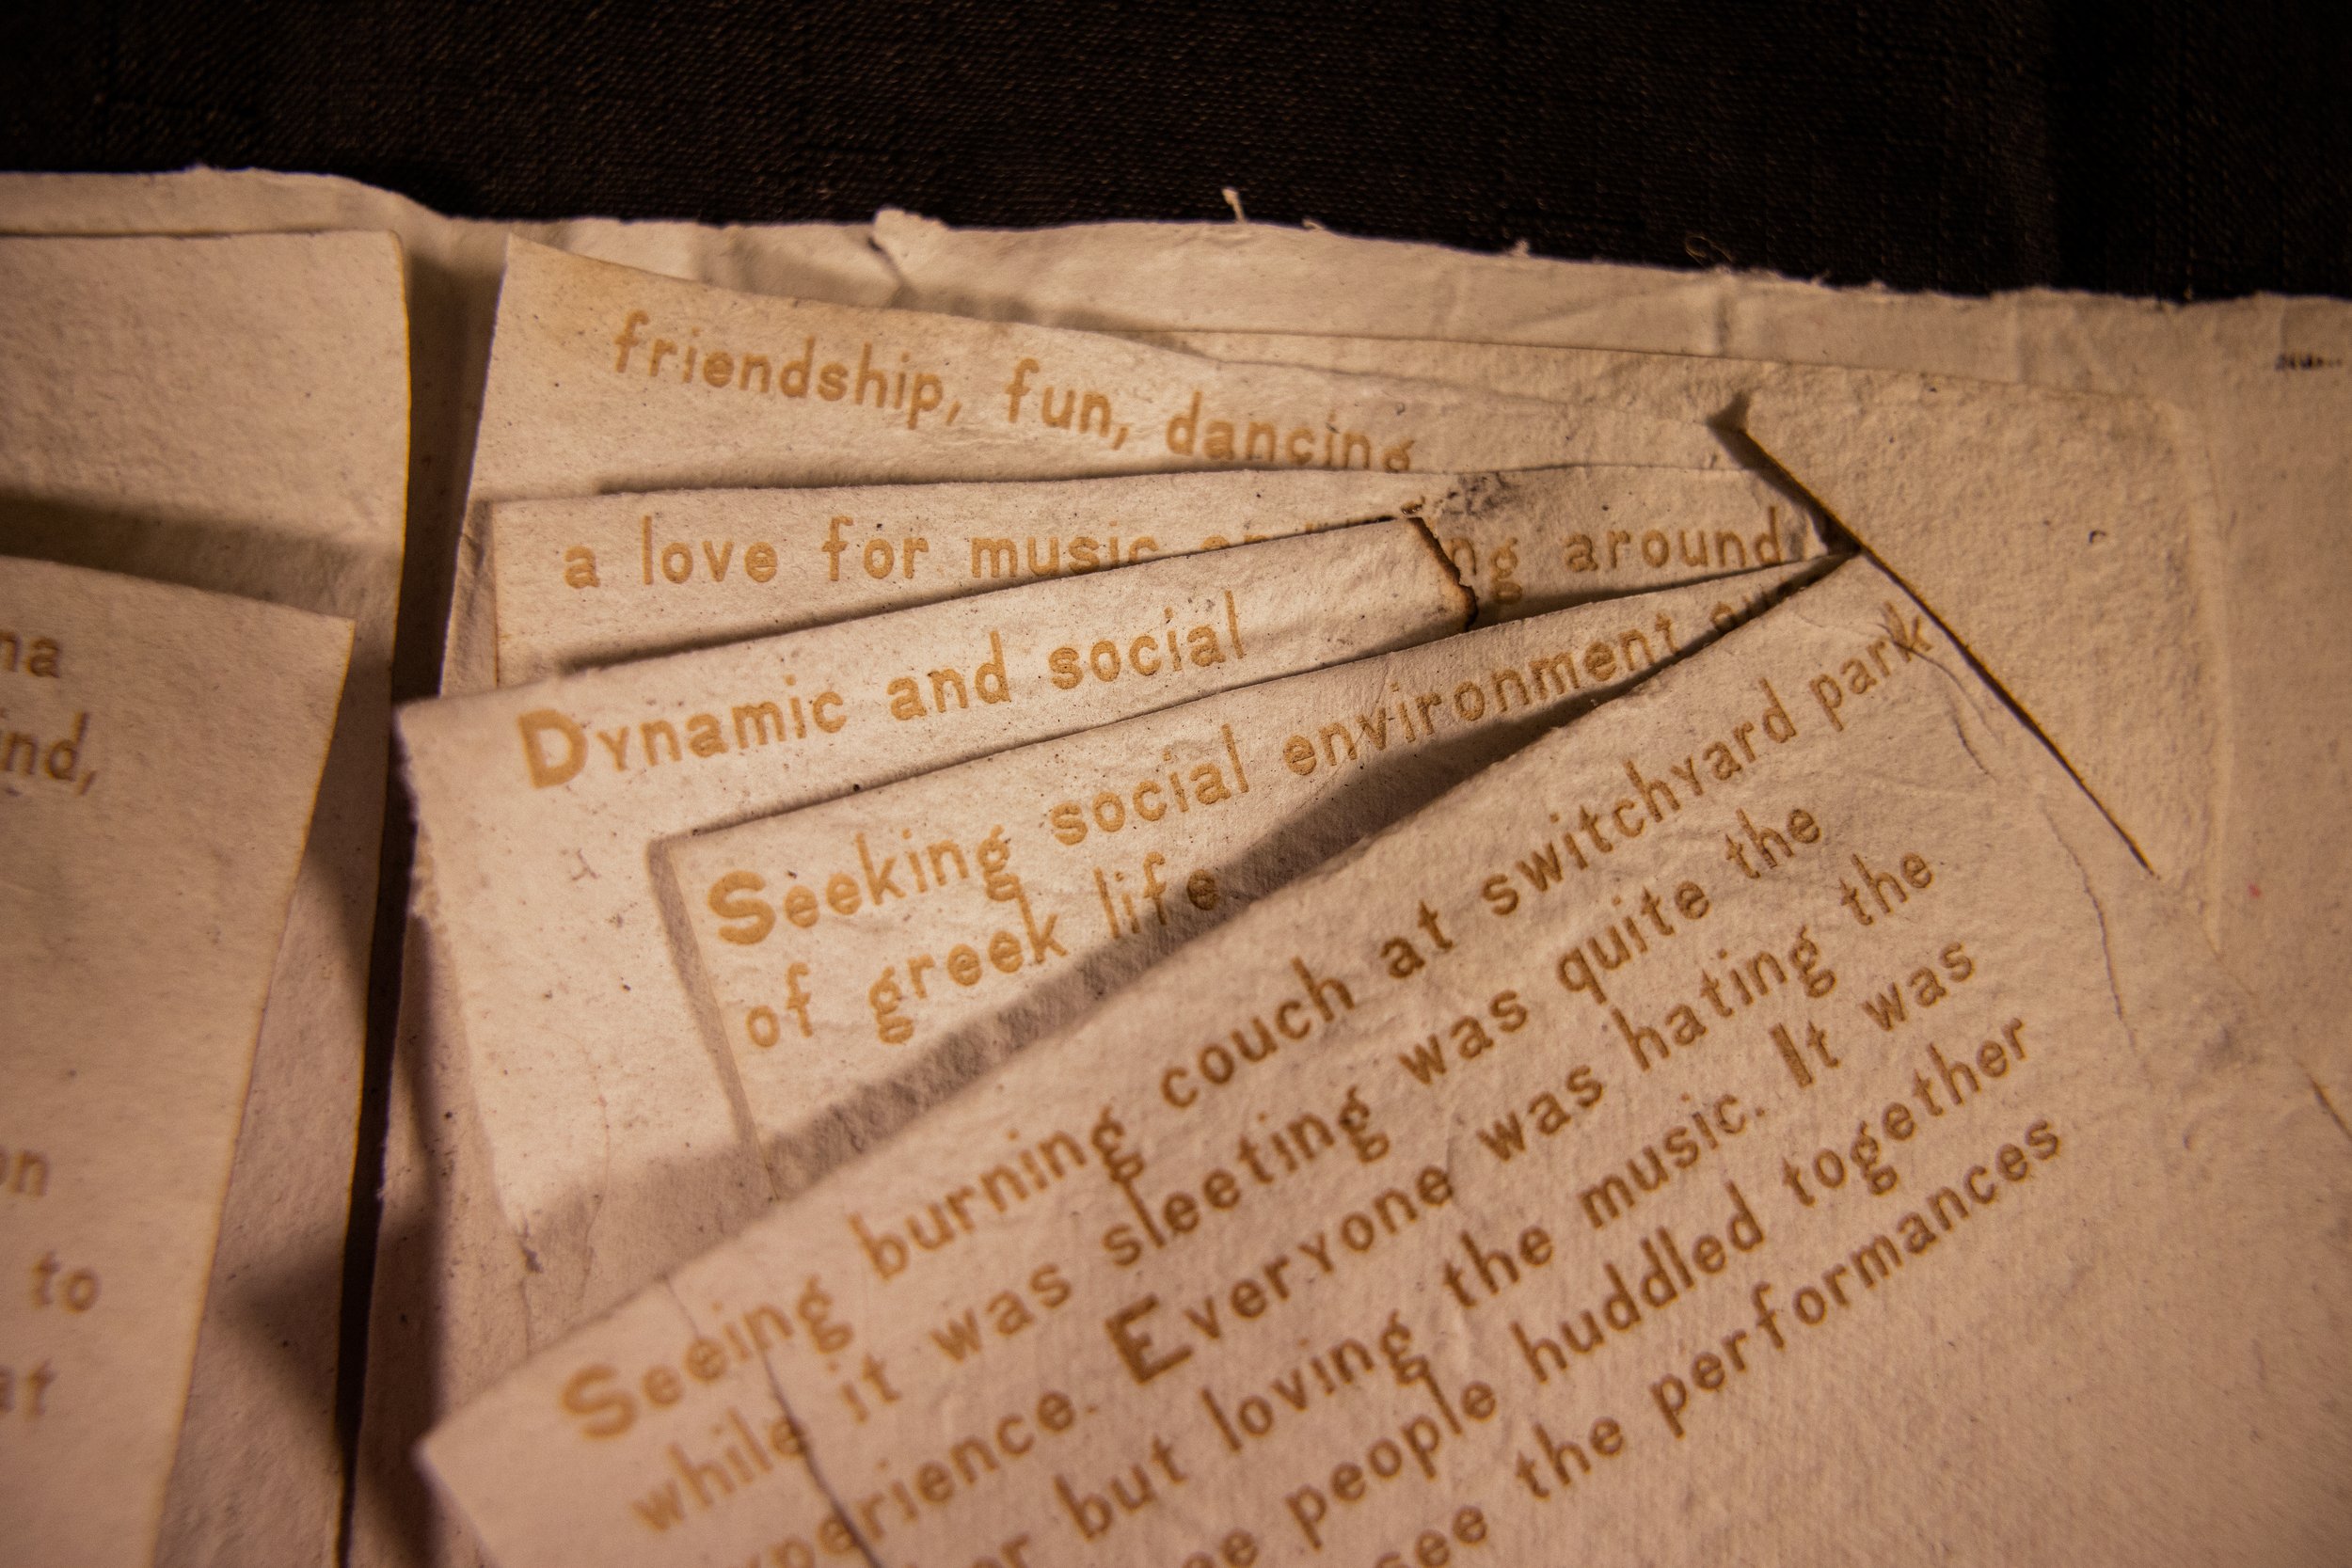 friendship, fun, dancing
a love for music around
Dynamic and social
Seeking social environment
of greek life
Seeing burning couch at switchyard park
while it was sleeting was quite the
experience. Everyone was hating the
but loving the music. It was
people huddled together
see the performances
to